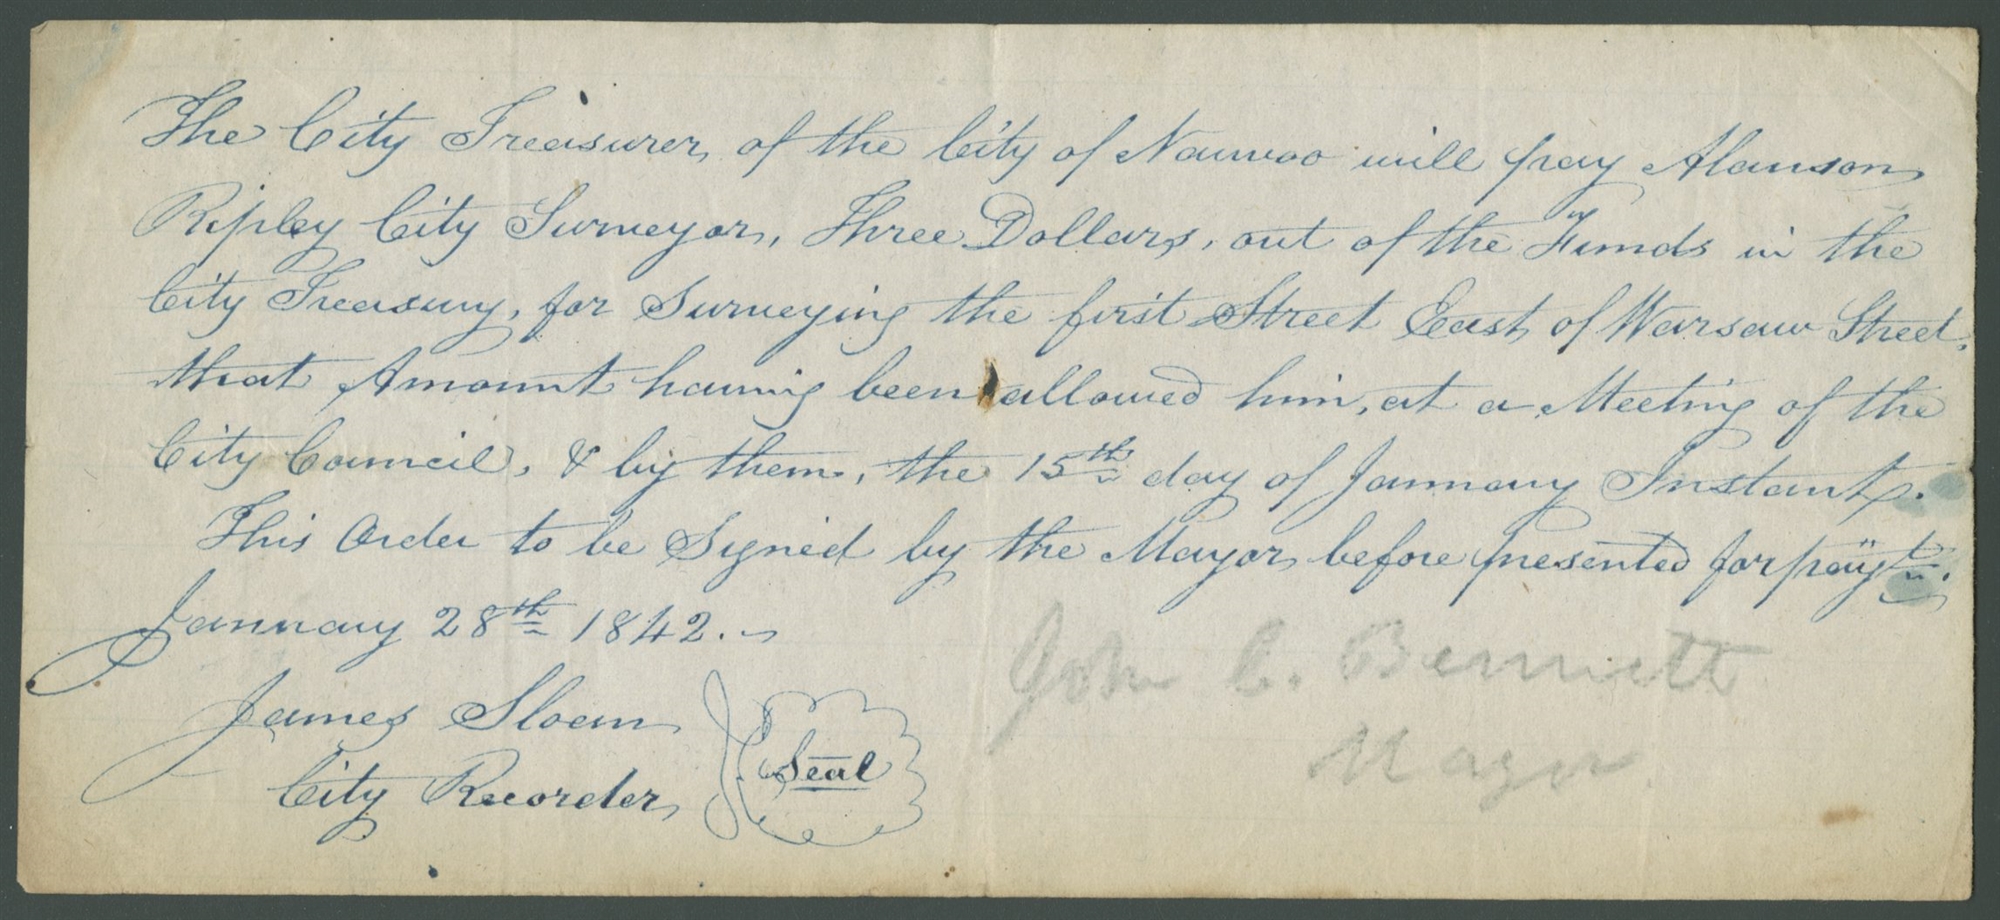 The City Treasurer, of the City of Nauvoo will pay Alanson
Ripley City Surveyor, Three Dollars, out of the Funds in the
City Treasury, for Surveying the first Street East of Warsaw Street,
that Amount having been allowed him, at a Meeting of the
City Council, & by them, the 15th day of January Instant.
This Order to be Signed by the Mayor before presented for payt.
January 28th 1842.
John C. Bennett
Mayor
James Sloan
City Recorder
Seal